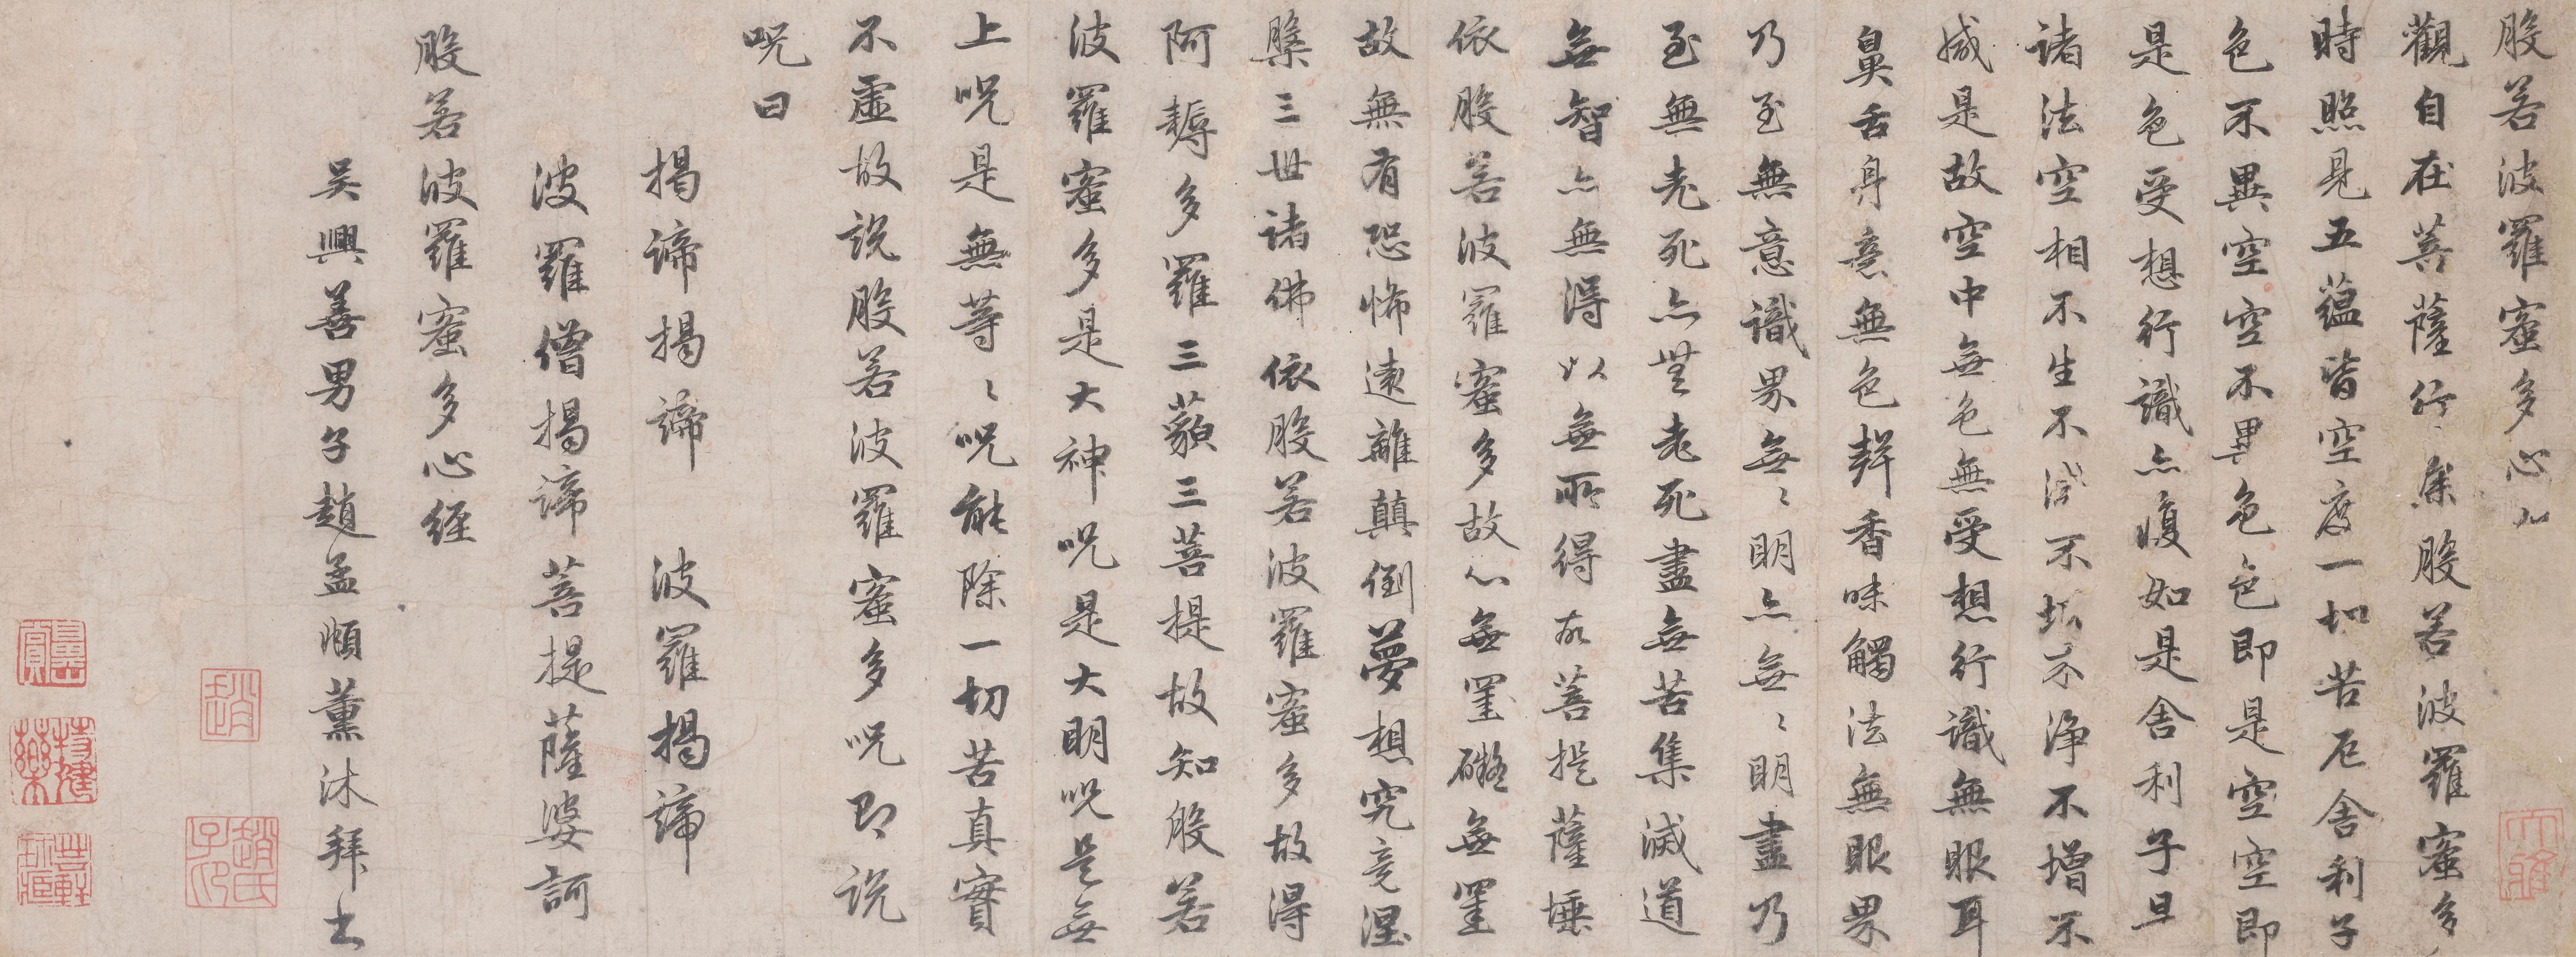 般若波羅蜜多心
觀自在菩薩行深般若波羅蜜多
時照見五蘊皆空度一切苦厄舍利子
色不異空空不異色色即是空空即
是色受想行識亦復如是舍利子是
諸法空相不生不滅不垢不淨不增不
減是故空中無色無受想行識無眼耳
鼻舌身意無色聲香味觸法無眼界
乃至無意識界無〻明亦無〻明盡乃
至無老死亦無老死盡無苦集滅道
無智亦無得以無所得故菩提薩埵
依般若波羅蜜多故心無罣礙無罣
故無有恐怖遠離顛倒夢想究竟涅
槃三世諸佛依般若波羅蜜多故得
阿耨多羅三藐三菩提故知般若
波羅蜜多是大神呪是大明呪是無
上呪是無等〻呪能除一切苦真實
不虛故說般若波羅蜜多呪即說
呪曰
揭諦揭諦 波羅揭諦
波羅僧揭諦菩提薩婆訶
般若波羅蜜多心經
吳興善男子趙孟頫薰沐拜書
大雅
趙
特健藥